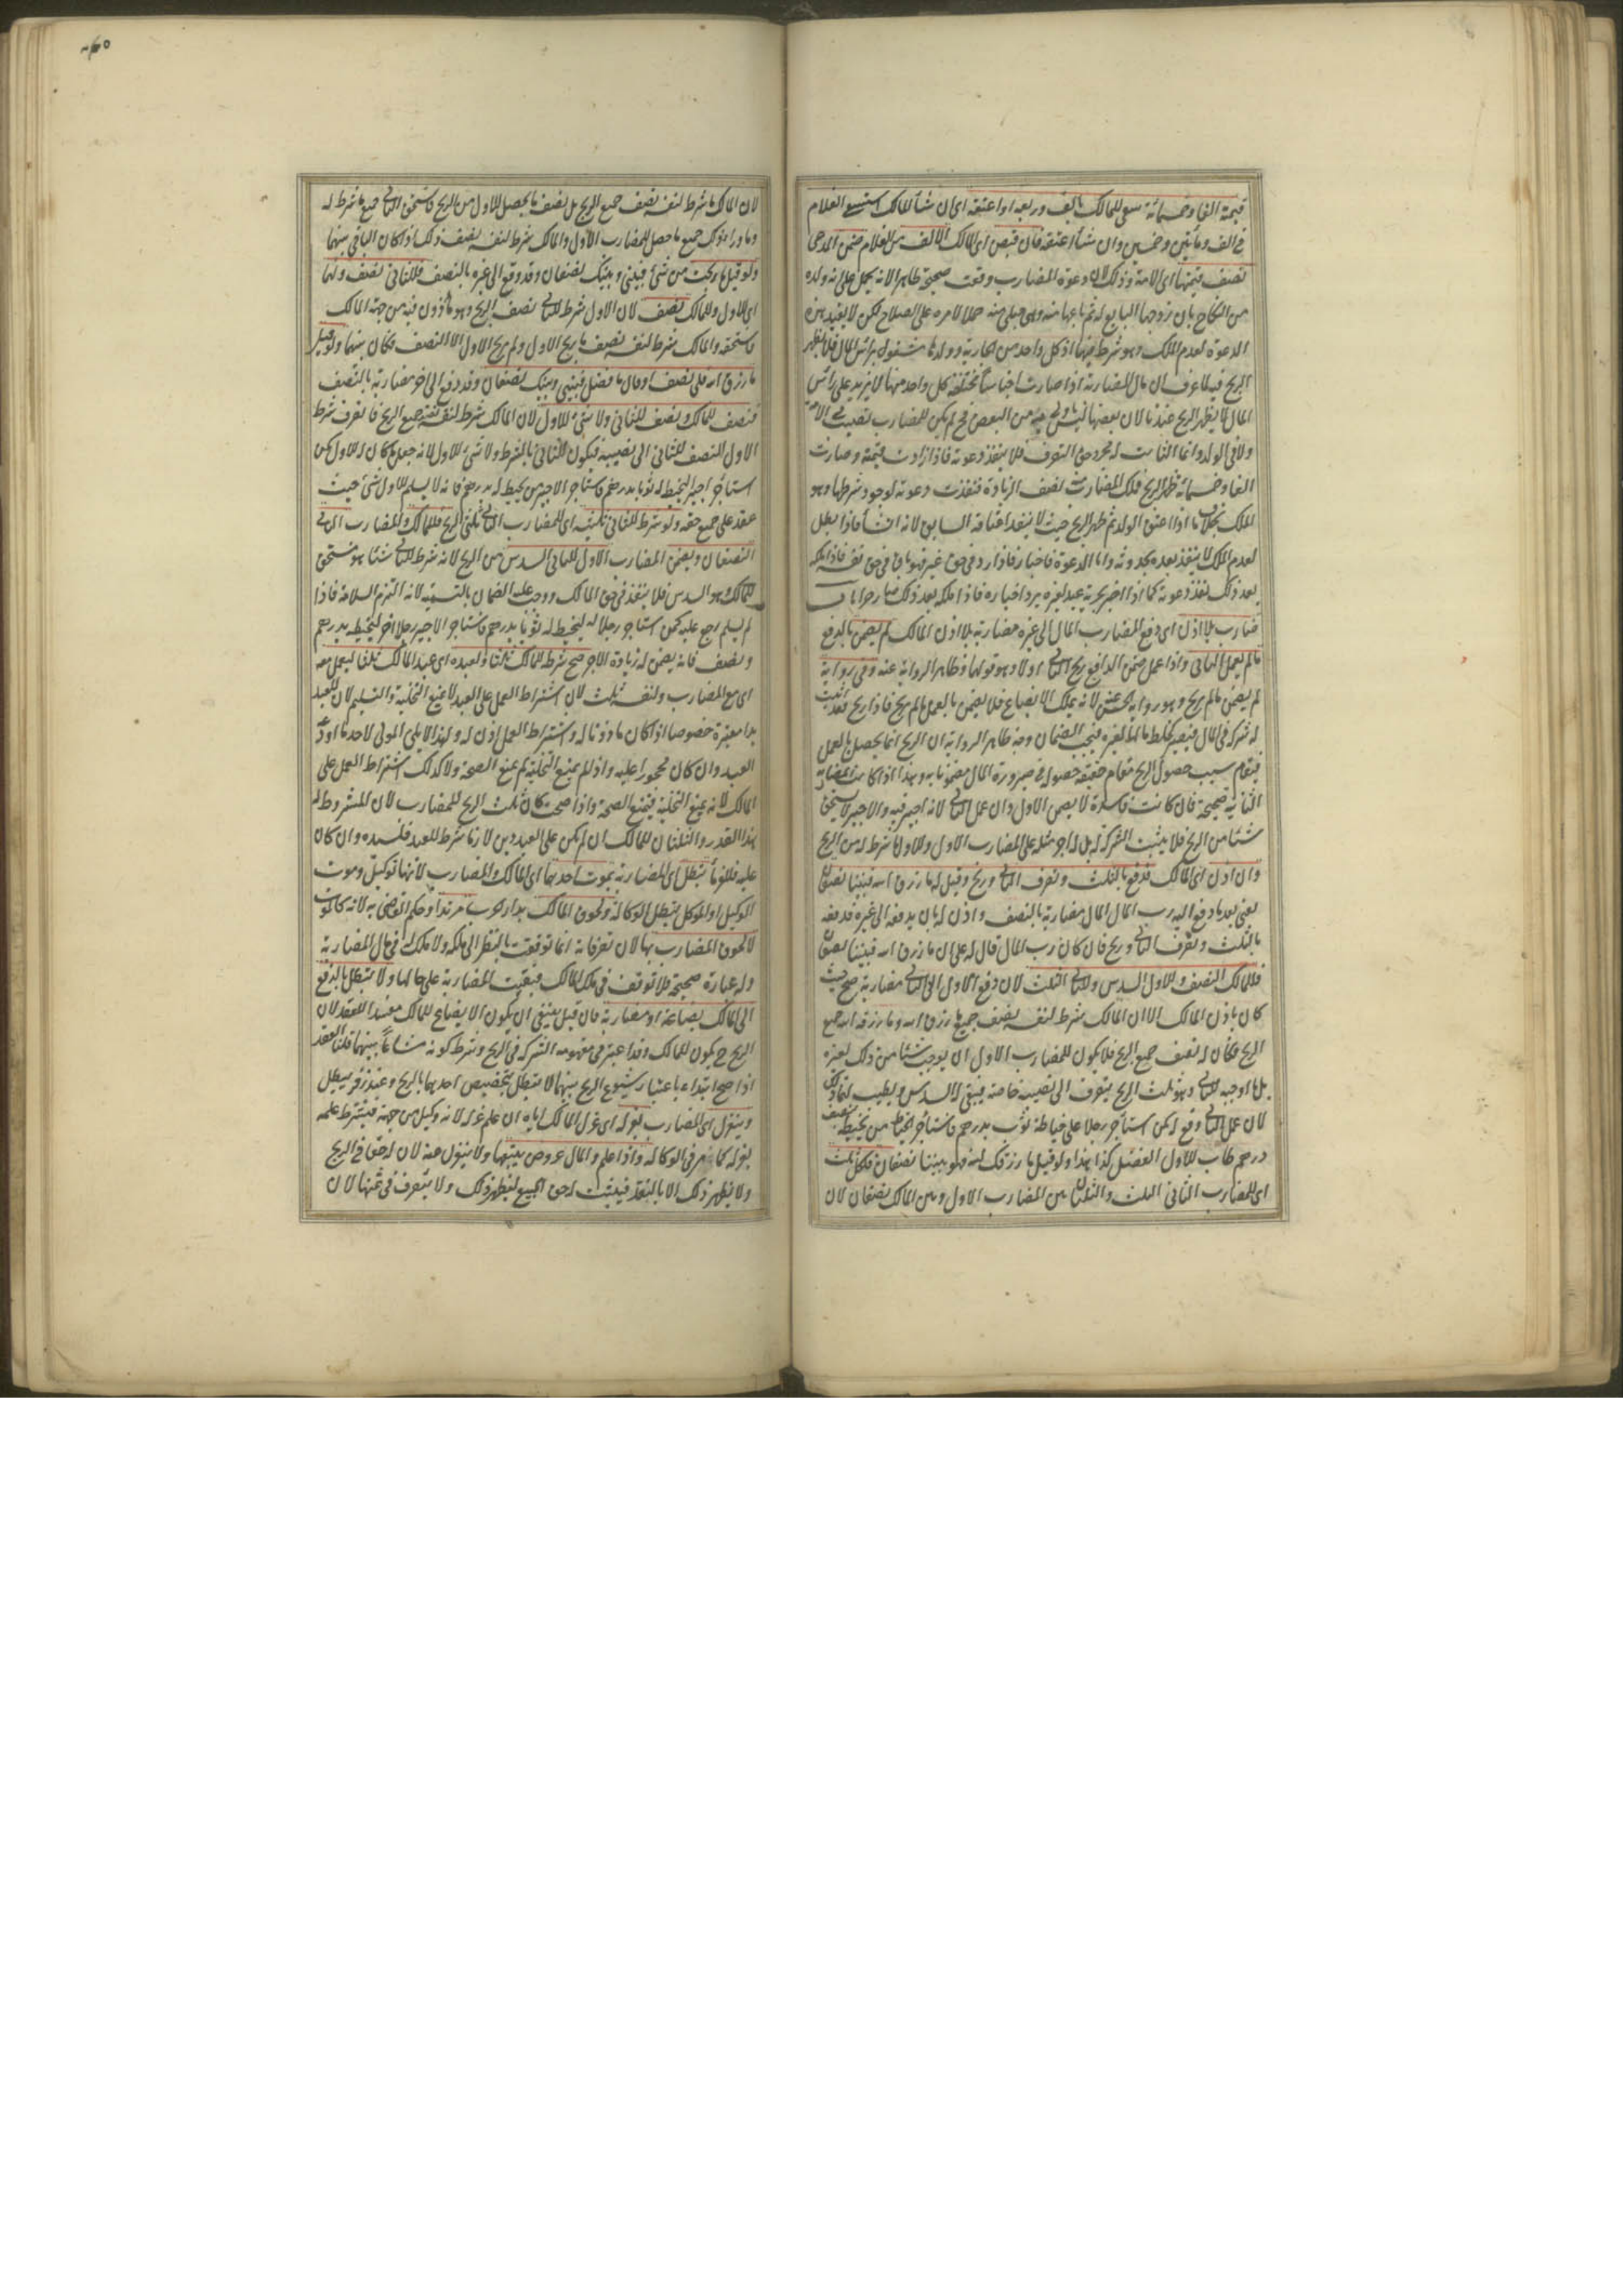 قيمته الفا وخمسمائة سعى للمالك بالف وربعه او اعتقه اى ان شأ المالك استسعى الغلام
فى الف ومأتين وخمسين وان شأ اعتقه فان قبض اى المالك الالف من الغلام ضمن المدعى
نصف قيمتها اى الامة وذلك لان دعوة المضارب وقعت صحيحة ظاهرا لانه يحمل على انه ولده
من النكاح بان زوجها البايع له ثم باعها منه وهى حبلى منه حملا لامره على الصلاح لكن لا يفيد هذه
الدعوة لعدم الملك وهو شرط فيها اذ كل واحد من الجارية وولدها مشغول برأس المال فلا يظهر
الربح فيه لما عرف ان مال المضاربة اذا صارت اجناسا مختلفة كل واحد منها لا يزيد على رأس
المال لا يظهر الربح عندنا لان بعضها ليس باولى به من البعض فح لم يكن للمضارب نصيب فى الامة
ولا فى الولد وانما الثابت له مجرد حق التصرف فلا ينفذ دعوته فاذا زادت قيمته وصارت
الفا وخمسمائة ظهر الربح فملك المضارب منه نصف الزيادة فنفذت دعوته لوجود شرطها وهو
الملك بخلاف ما اذا اعتق الولد ثم ظهر الربح حيث لا ينفذ اعتاقه السابق لانه انشأ فاذا بطل
لعدم الملك لا ينفذ بعده بحدوثه واما الدعوة فاخبار فاذا رد فى حق غيره فهو باق فى حق نفسه فاذا ملكه
بعد ذلك نفذ دعوته كما اذا اخبر بحرية عبد لغيره يرد اخباره فاذا ملكه بعد ذلك صار حرا باب
ضارب بلا اذن اى دفع المضارب المال الى غيره مضاربة بلا اذن المالك لم يضمن بالدفع
ما لم يعمل الثانى واذا عمل ضمن الدافع ربح الثانى او لا وهو قولهما وظاهر الرواية عنه وفى رواية
لم يضمن ما لم يربح وهو رواية الحسن عنه لانه يملك الابضاع فلا يضمن بالعمل ما لم يربح فاذا ربح فقد اثبت
له شركة فى المال فيصير كخلط ماله بغيره فيجب الضمان وجه ظاهر الرواية ان الربح انما يحصل بالعمل
فيقام سبب حصول الربح مقام حقيقة حصوله فى صيرورة المال مضمونا به وهذا اذا كانت المضاربة
الثانية صحيحة فان كانت فاسدة لا يضمن الاول وان عمل الثانى لانه اجير فيه والاجير لا يستحق
شيئا من الربح فلا يثبت الشركة له بل له اجر مثله على المضارب الاول وللاول ما شرط له من الربح
وان اذن اى المالك فدفع بالثلث وتصرف الثانى وربح وقيل له ما رزق الله فبيننا نصفان
يعنى بعد ما دفع اليه رب المال المال مضاربة بالنصف واذن له بان يدفعه الى غيره فدفعه
بالثلث وتصرف الثانى وربح فان كان رب المال قال له على ان ما رزق الله فبيننا نصفان
فللمالك النصف وللاول السدس وللثانى الثلث لان دفع الاول الى الثانى مضاربة صح حيث
كان باذن المالك الا ان المالك شرط لنفسه نصف جميع ما رزق الله وما رزقه الله جميع
الربح فكان له نصف جميع الربح فلا يكون للمضارب الاول ان يوجب شيئا من ذلك لغيره
بل ما اوجبه للثانى وهو ثلث الربح ينصرف الى نصيبه خاصة فيبقى له السدس ويطيب لهما ذلك
لان عمل الثانى وقع له كمن استأجر رجلا على خياطة ثوب بدرهم فاستأجر الخياط من يخيطه بنصف
درهم طاب للاول الفضل كذا هذا ولو قيل ما رزقك الله فهو بيننا نصفان فلكل ثلث
اى للمضارب الثانى الثلث والثلثان بين المضارب الاول وبين المالك نصفان لان
لان المالك ما شرط لنفسه نصف جميع الربح بل نصف ما يحصل للاول من الربح فاستحق الثانى جميع ما شرط له
وما وراء ذلك جميع ما حصل للمضارب الاول والمالك شرط لنفسه نصف ذلك فكان الباقى بينهما
ولو قيل ما ربحت من شئ فبينى وبينك نصفان وقد دفع الى غيره بالنصف فللثانى نصف ولهما
اى للاول وللمالك نصف لان الاول شرط للثانى نصف الربح وهو مأذون فيه من جهة المالك
فاستحقه والمالك شرط لنفسه نصف ما ربح الاول ولم يربح الاول الا النصف فكان بينهما ولو قيل
ما رزق الله فلى نصف او قال ما فضل فبينى وبينك نصفان وقد دفع الى اخر مضاربة بالنصف
فنصف للمالك ونصف للثانى ولا شئ للاول لان المالك شرط لنفسه نصف جميع الربح فانصرف شرط
الاول النصف للثانى الى نصيبه فيكون للثانى بالشرط ولا شئ للاول لانه جعل ما كان له للاول كمن
استأجر اجيرا ليخيط له ثوبا بدرهم فاستأجر الاجير من يخيط له بدرهم فانه لا يسلم للاول شئ حيث
عقد على جميع حقه ولو شرط للثانى ثلثيه اى للمضارب الثانى ثلثى الربح فللمالك وللمضارب الثانى
النصفان ويضمن المضارب الاول للثانى السدس من الربح لانه شرط للثانى شيئا هو مستحق
للمالك وهو السدس فلا ينفذ فى حق المالك ووجب عليه الضمان بالتسمية لانه التزم السلامة فاذا
لم يسلم رجع عليه كمن استأجر رجلا ليخيط له ثوبا بدرهم فاستأجر الاجير رجلا اخر ليخيطه بدرهم
ونصف فانه يضمن له زيادة الاجر صح شرطه للمالك ثلثا ولعبده اى عبد المالك ثلثا ليعمل معه
اى مع المضارب ولنفسه ثلث لان اشتراط العمل على العبد لا يمنع التخلية والتسليم لان للعبد
يدا معتبرة خصوصا اذا كان مأذونا له واشتراط العمل اذن له ولهذا لا يلى المولى لاخذ ما اودع
العبد وان كان محجورا عليه واذا لم يمنع التخلية لم يمنع الصحة ولا كذلك اشتراط العمل على
المالك لانه يمنع التخلية فيمنع الصحة واذا صحت كان ثلث الربح للمضارب لان المشروط له
هذا القدر والثلثان للمالك ان لم يكن على العبد دين لان ما شرط للعبد فلسيده وان كان
عليه فلغرمائه تبطل اى المضاربة بموت احدهما اى المالك والمضارب لانها توكيل وموت
الوكيل او الموكل يبطل الوكالة ولحوق المالك بدار الحرب مرتدا وحكم القاضى به لانه كالموت
لا لحوق المضارب بها لان تصرفاته انما توقفت بالنظر الى ملكه ولا ملك له فى مال المضاربة
وله عبارة صحيحة فلا توقف فى ملك المالك فبقيت المضاربة على حالها ولا تبطل بالدفع
الى المالك بضاعة او مضاربة فان قيل ينبغى ان يكون الابضاع للمالك مفسدا للعقد لان
الربح ح يكون للمالك وقد اعتبر فى مفهومه الشركة فى الربح وشرط كونه مشاعا بينهما قلنا العقد
اذا صح ابتداء باعتبار شيوع الربح بينهما لا يبطل بتخصيص احدهما بالربح وعند زفر يبطل
وينعزل اى المضارب بعزله اى عزل المالك اياه ان علم عزله لانه وكيل من جهته فيشترط علمه
بعزله كما مر فى الوكالة واذا علم والمال عروض يبيعها ولا ينعزل عنه لان له حقا فى الربح
ولا يظهر ذلك الا بالنقد فيثبت له حق البيع ليظهر ذلك ولا يتصرف فى ثمنها لان